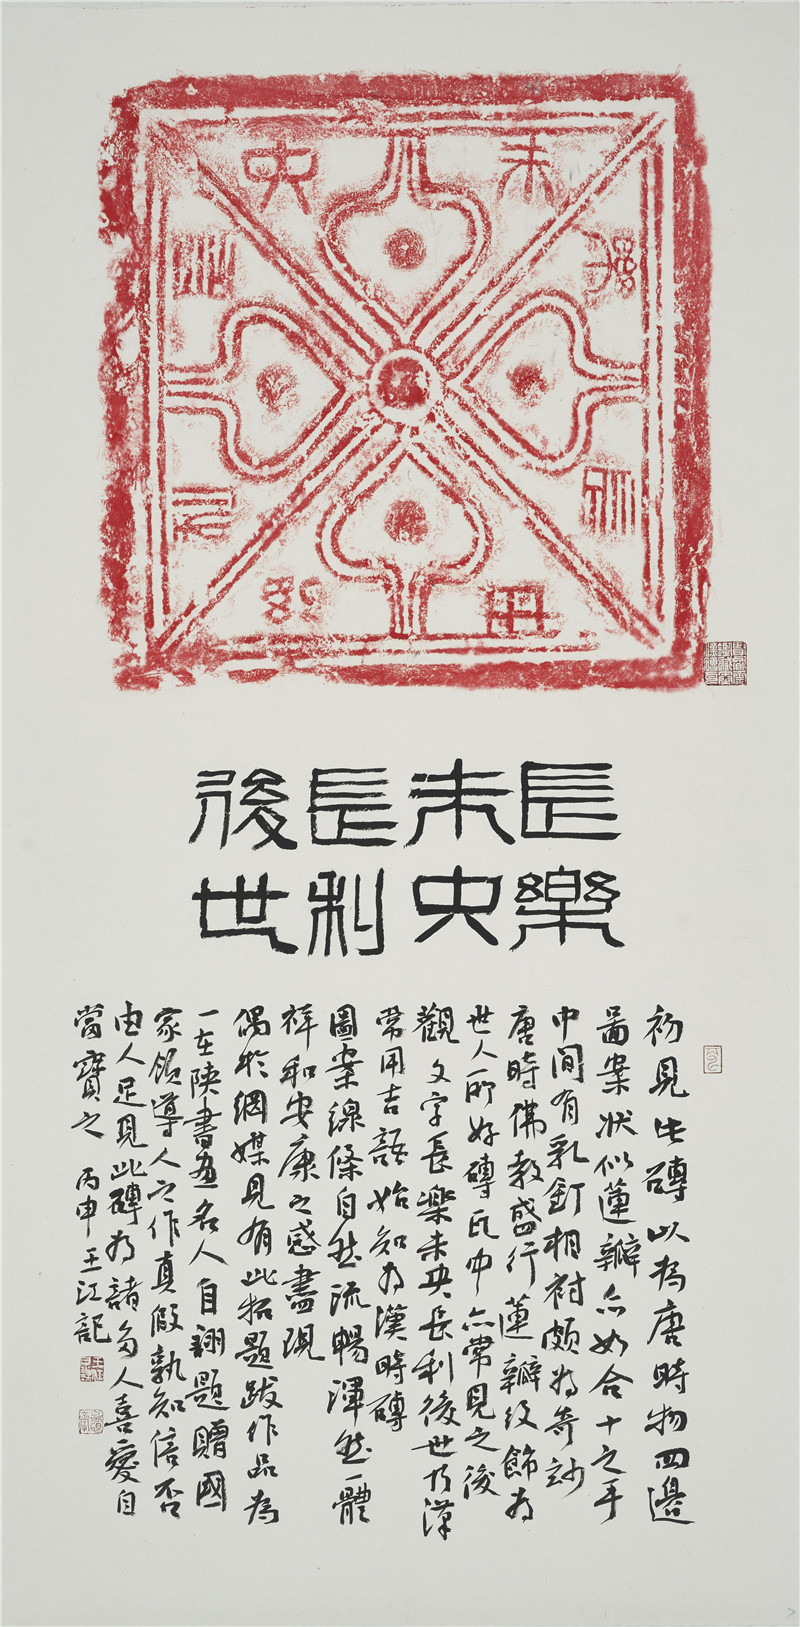 未央
長樂
未央
長利
後世
初見此磚以為唐時物四邊
啚案狀似蓮瓣亦如合十之手
中間有乳釘相襯頗為奇妙
唐時佛教盛行蓮瓣紋飾為
世人所好磚瓦中亦常見之後
觀文字長樂未央長利後世乃漢
常用吉語始知為漢時磚
圖案線條自然流暢渾然一體
祥和安康之感盡現
偶於網媒見有此拓題跋作品為
一在陝書畫名人自詡題贈國
家領導人之作真假孰知信否
由人足見此磚為諸多人喜愛自
當寶之 丙申王江記